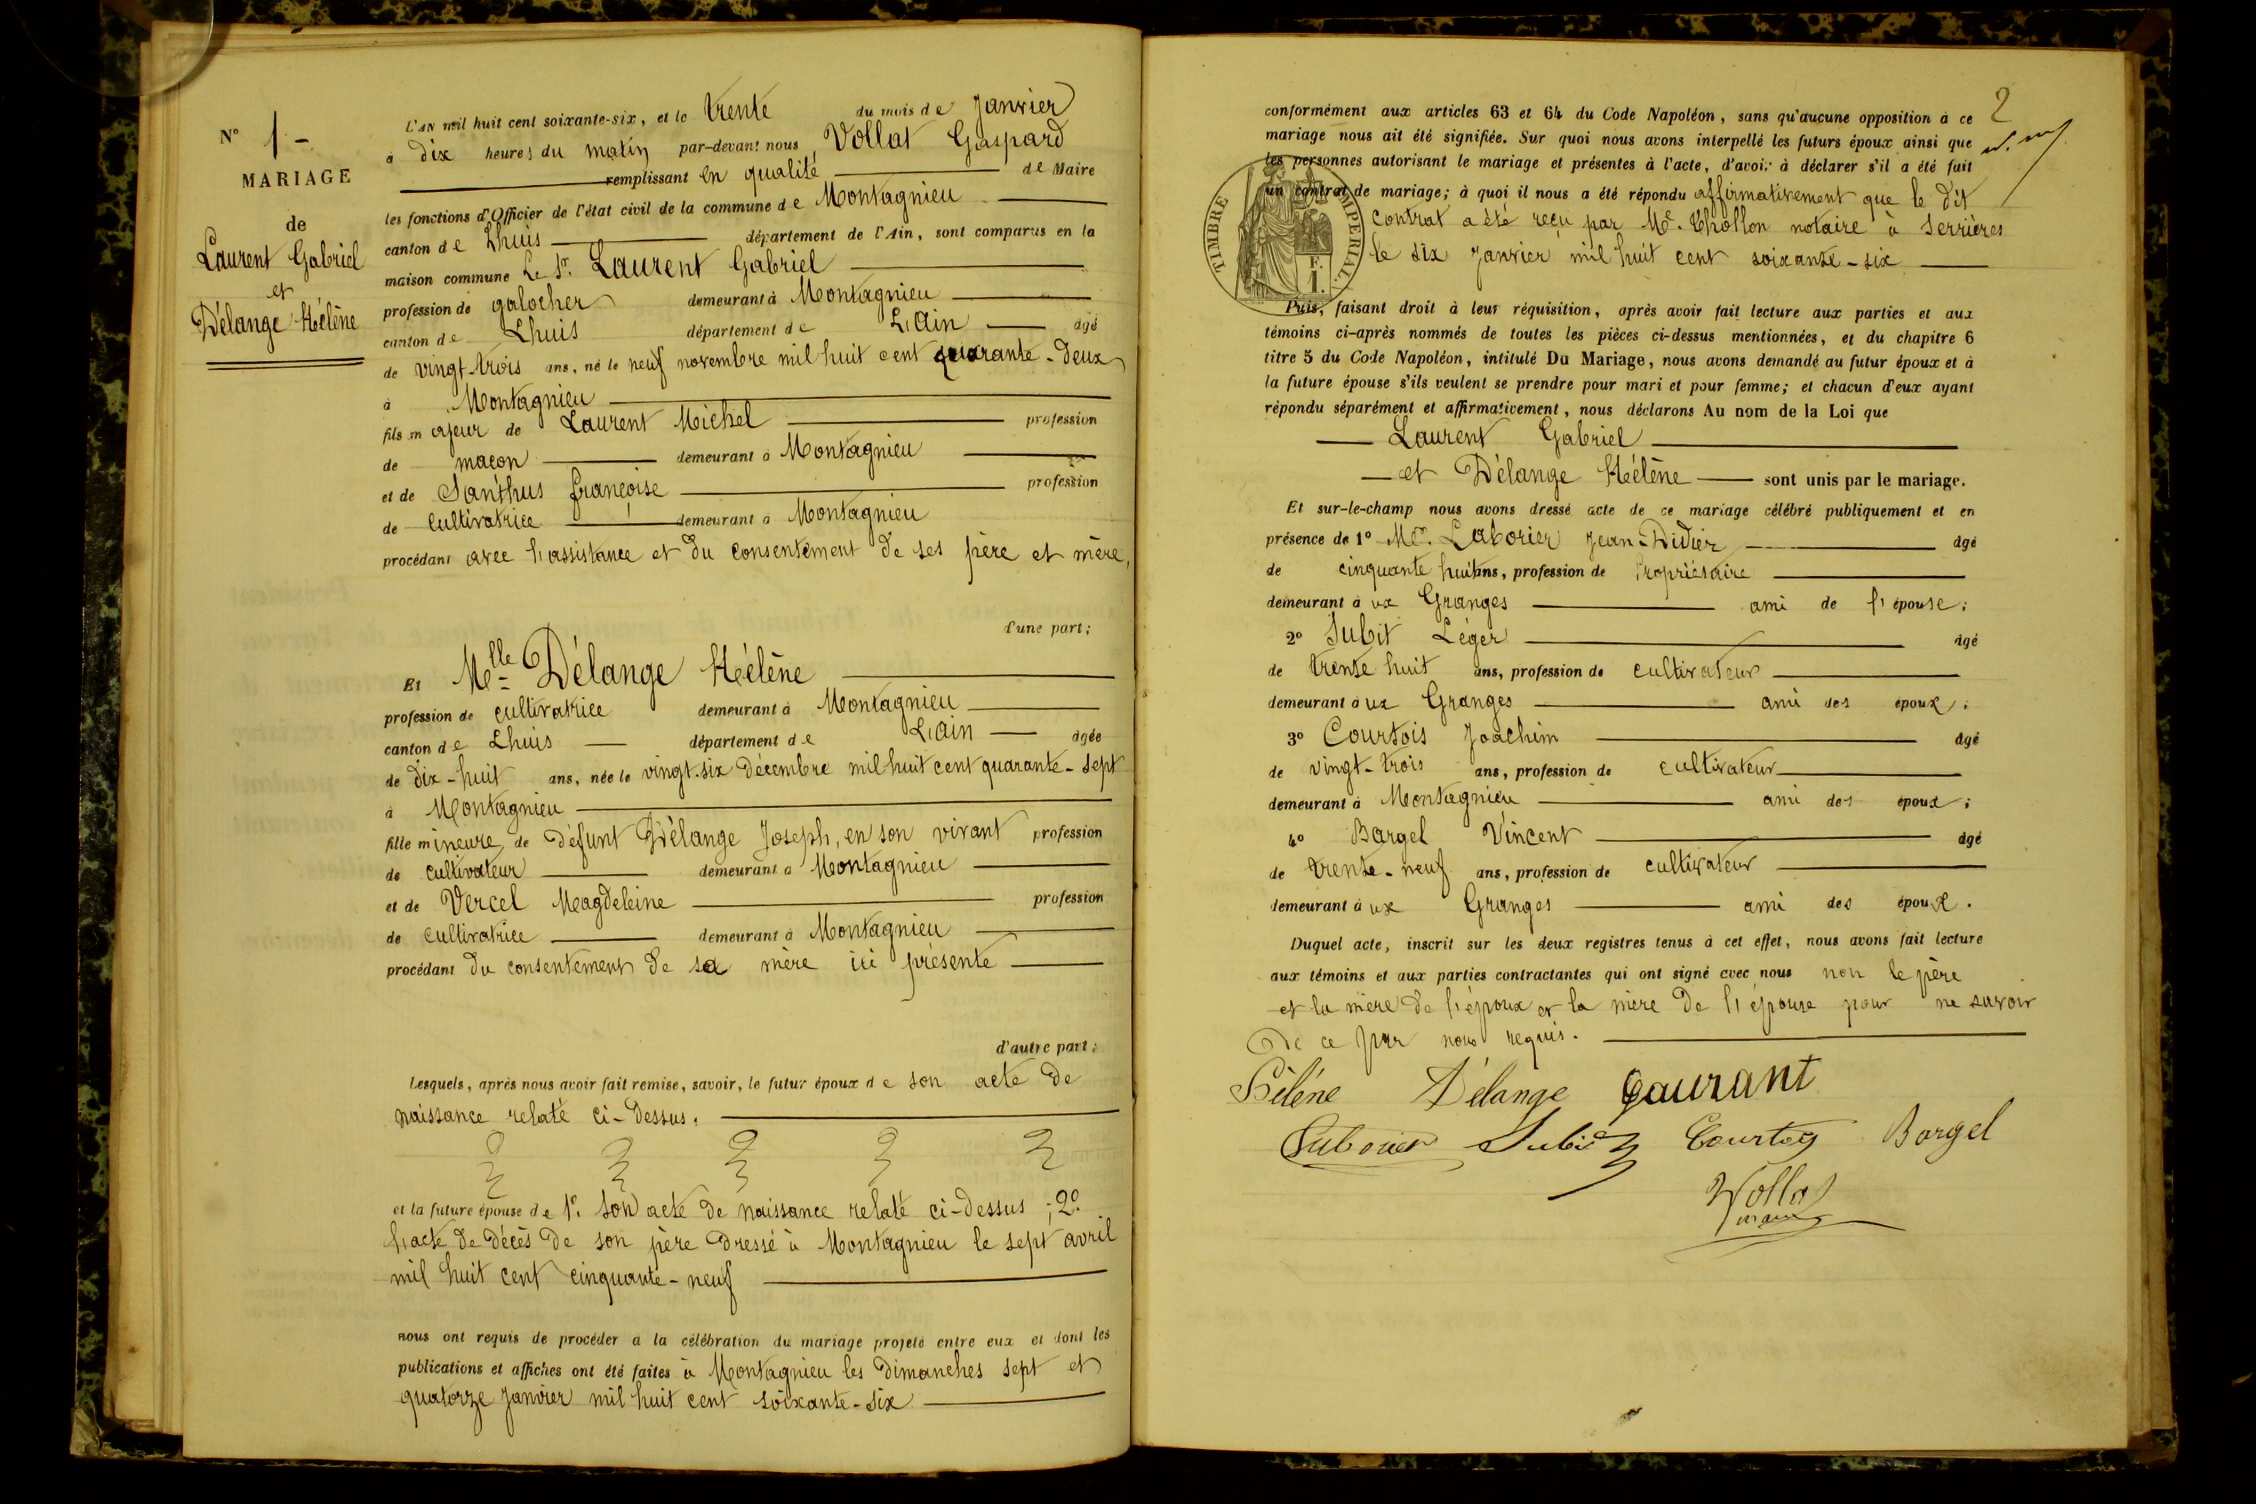 N° 1 -
MARIAGE
de
Laurent Gabriel
et
Délange Hélène
L'AN mil huit cent soixante-six, et le trente du mois de Janvier
à dix heures du matin par-devant nous Vollat Gaspard
remplissant en qualité de Maire
les fonctions d'Officier de l'état civil de la commune de Montagnieu
canton de Lhuis département de l'Ain, sont comparus en la
maison commune Le Sr. Laurent Gabriel
profession de galocher demeurant à Montagnieu
canton de Lhuis département de L'Ain âgé
de vingt-trois ans, né le neuf novembre mil huit cent quarante-deux
à Montagnieu
fils majeur de Laurent Michel profession
de maçon demeurant à Montagnieu
et de Santhus françoise profession
de cultivatrice demeurant à Montagnieu
procédant avec l'assistance et du consentement de ses père et mère,
d'une part;
Et Melle Délange Hélène
profession de cultivatrice demeurant à Montagnieu
canton de Lhuis département de L'Ain âgée
de dix-huit ans, née le vingt-six Décembre mil huit cent quarante-sept
à Montagnieu
fille mineure de défunt Délange Joseph, en son vivant profession
de cultivateur demeurant à Montagnieu
et de Vercel Magdeleine profession
de cultivatrice demeurant à Montagnieu
procédant du consentement de sa mère ici présente
d'autre part;
Lesquels, après nous avoir fait remise, savoir, le futur époux de son acte de
naissance relaté ci-dessus.
et la future épouse de 1° son acte de naissance relaté ci-dessus; 2°
l'acte de décès de son père dressé à Montagnieu le sept avril
mil huit cent cinquante-neuf
nous ont requis de procéder à la célébration du mariage projeté entre eux et dont les
publications et affiches ont été faites à Montagnieu les dimanches sept et
quatorze Janvier mil huit cent soixante-six
2
conformément aux articles 63 et 64 du Code Napoléon, sans qu'aucune opposition à ce
mariage nous ait été signifiée. Sur quoi nous avons interpellé les futurs époux ainsi que
les personnes autorisant le mariage et présentes à l'acte, d'avoir à déclarer s'il a été fait
un contrat de mariage; à quoi il nous a été répondu affirmativement que le dit
contrat a été reçu par Me. Thollon notaire à Serrières
le six Janvier mil huit cent soixante-six
TIMBRE IMPERIAL.
F.
1.
Puis, faisant droit à leur réquisition, après avoir fait lecture aux parties et aux
témoins ci-après nommés de toutes les pièces ci-dessus mentionnées, et du chapitre 6
titre 5 du Code Napoléon, intitulé Du Mariage, nous avons demandé au futur époux et à
la future épouse s'ils veulent se prendre pour mari et pour femme; et chacun d'eux ayant
répondu séparément et affirmativement, nous déclarons Au nom de la Loi que
Laurent Gabriel
et Délange Hélène sont unis par le mariage.
Et sur-le-champ nous avons dressé acte de ce mariage célébré publiquement et en
présence de 1° Mr. Laborier Jean-Didier âgé
de cinquante huit ans, profession de Propriétaire
demeurant à ux Granges ami de l'épouse;
2° Subit Léger âgé
de trente huit ans, profession de cultivateur
demeurant à ux Granges ami des époux;
3° Courtois Joachim âgé
de vingt-trois ans, profession de cultivateur
demeurant à Montagnieu ami des époux;
4° Bargel Vincent âgé
de trente-neuf ans, profession de cultivateur
demeurant à ux Granges ami des époux.
Duquel acte, inscrit sur les deux registres tenus à cet effet, nous avons fait lecture
aux témoins et aux parties contractantes qui ont signé avec nous non le père
et la mère de l'époux et la mère de l'épouse pour ne savoir
de ce par nous requis.
Hélène Délange Laurant
Laborier Subit Courtois Bargel
Vollat
maire